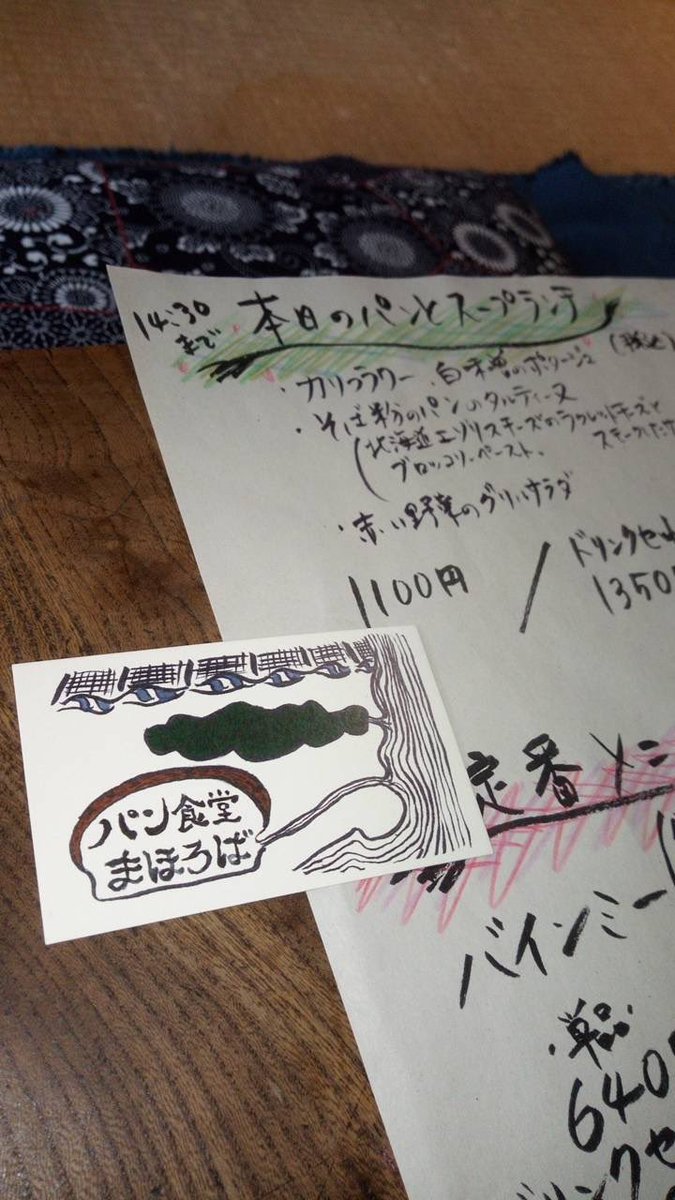 14:30まで
本日のパンとスープランチ
(税込)
・カリフラワー、白味噌のポタージュ
・そば粉のパンのタルティーヌ
(北海道エゾリスチーズのラクレットチーズと
ブロッコリーペースト、
・赤い野菜のグリルサラダ
1100円 / ドリンクセット
1350
パン食堂
まほろば
定番メニ
バインミー
・単品
640
ドリンクセ